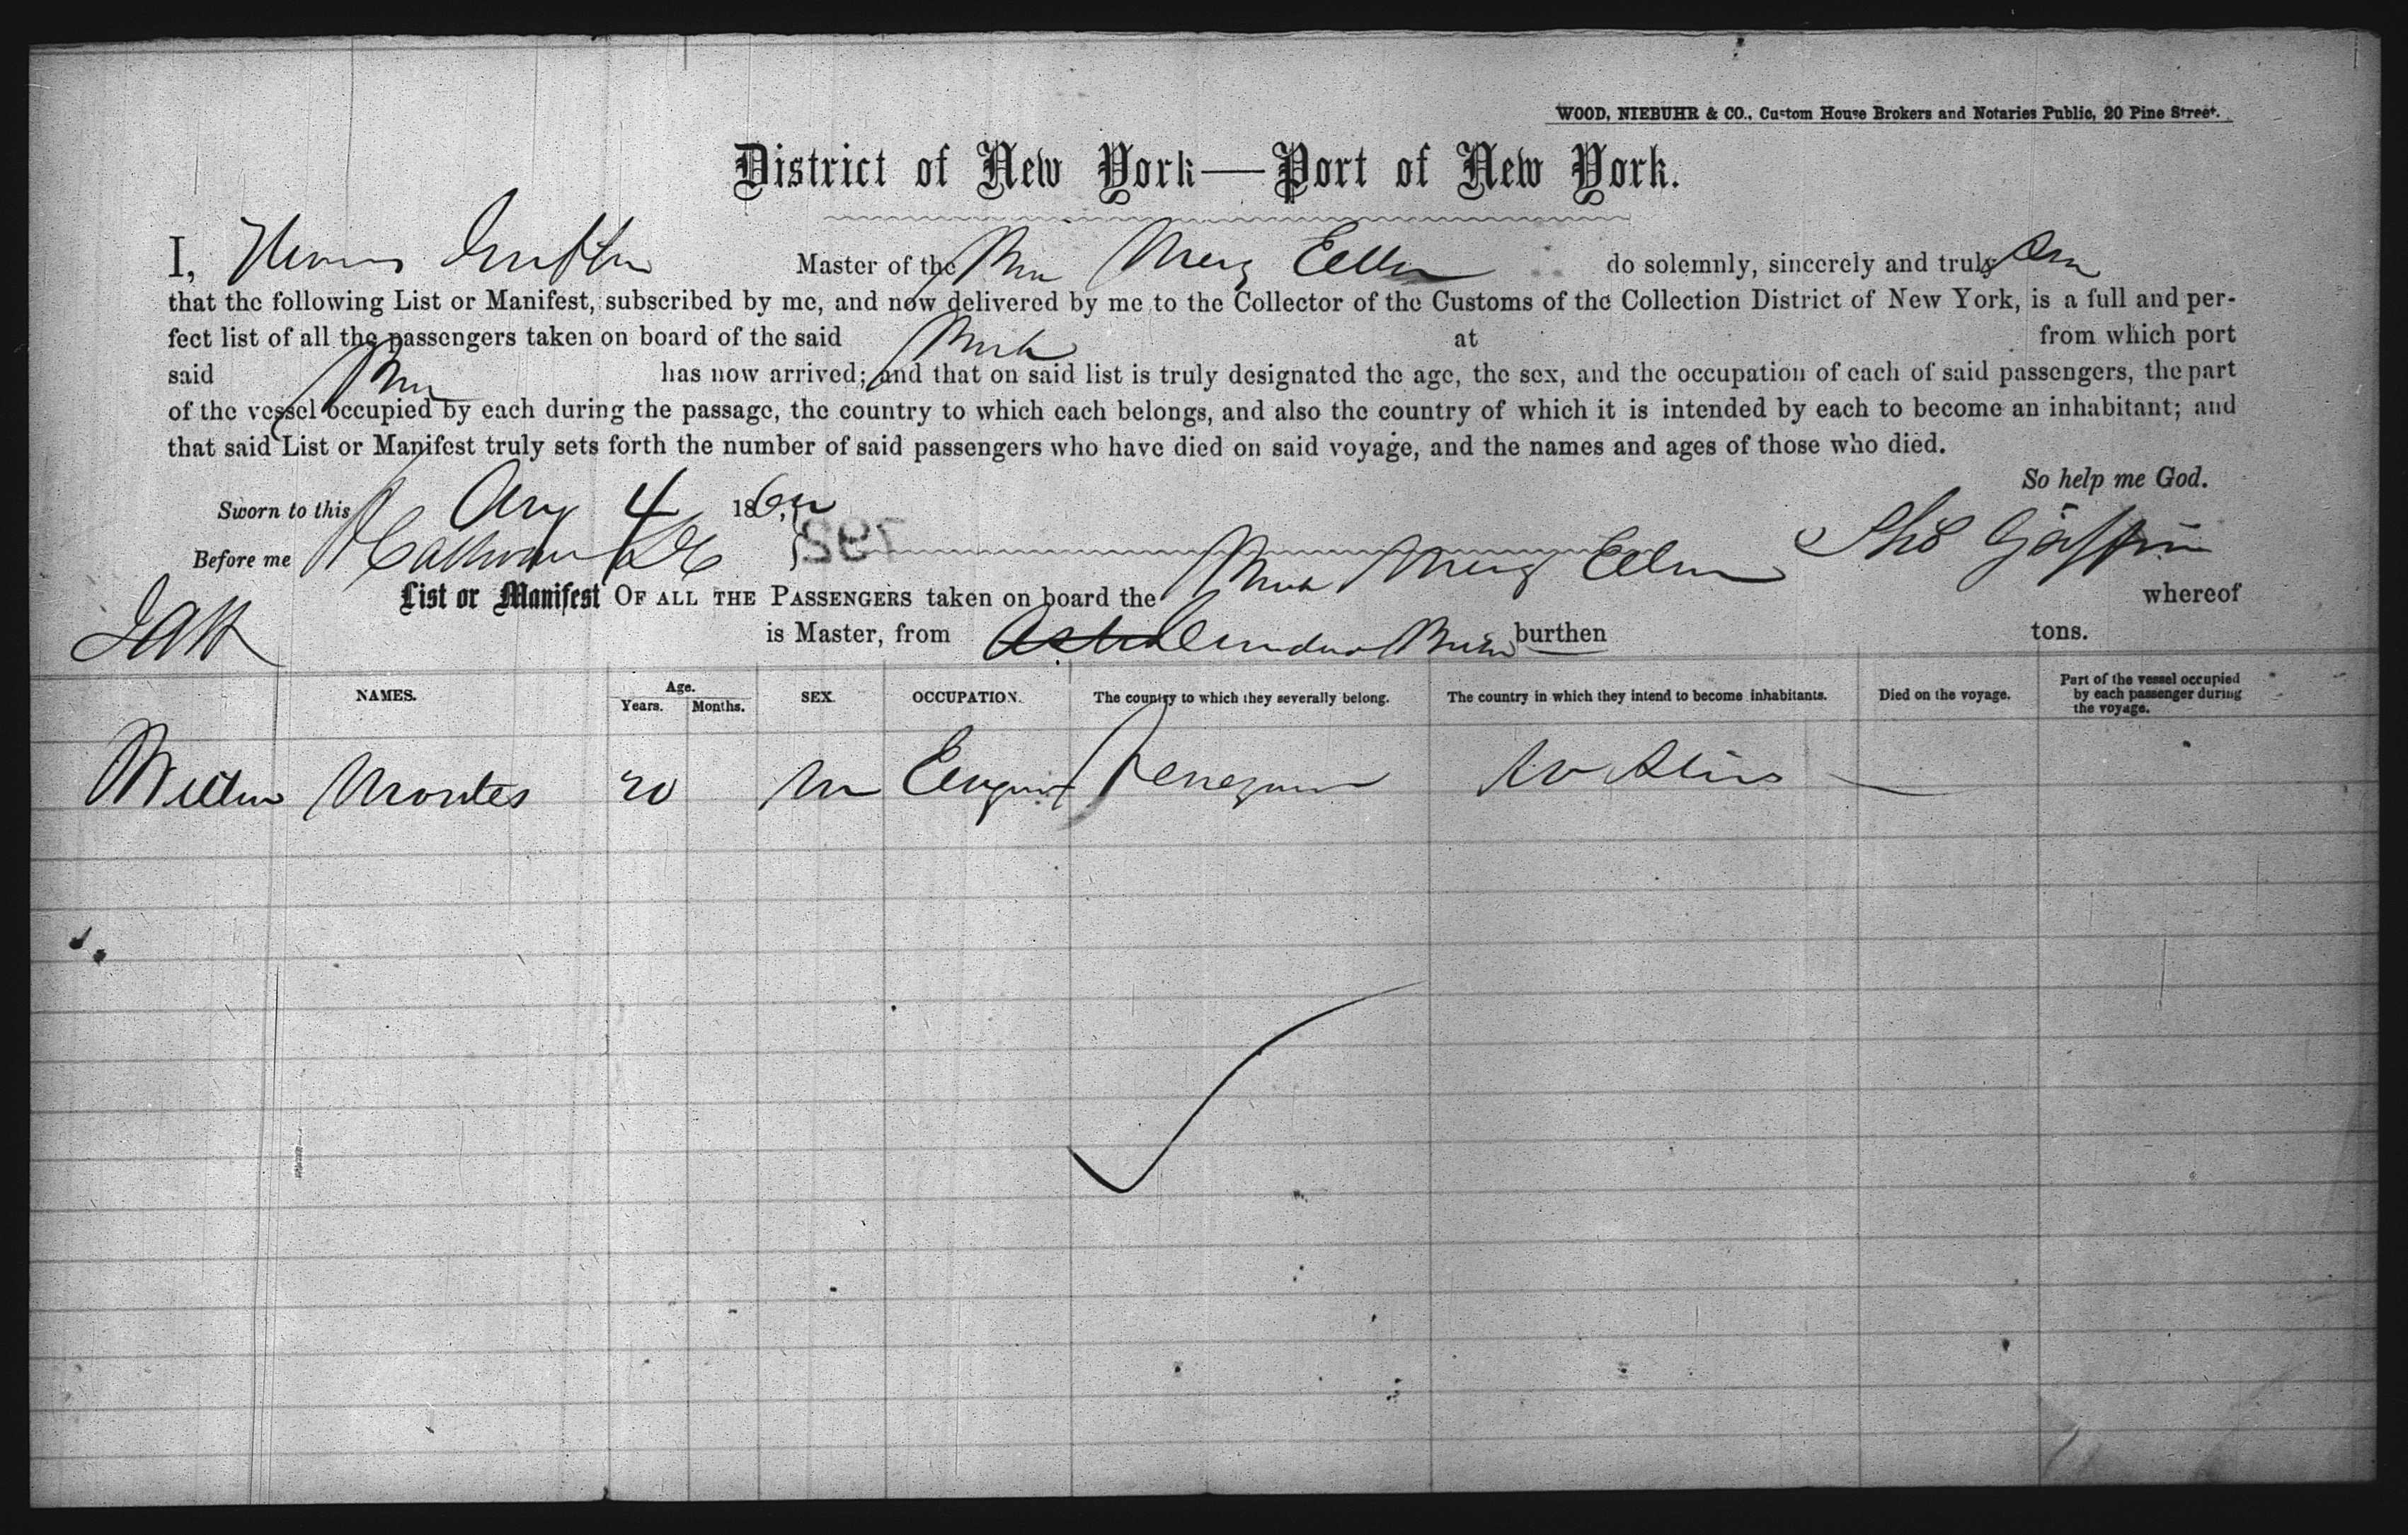 WOOD, NIEBUHR & CO., Custom House Brokers and Notaries Public, 20 Pine Street.
District of New York—Port of New York.
I, Thomas Griffin Master of the Mary Ellen do solemnly, sincerely and truly
that the following List or Manifest, subscribed by me, and now delivered by me to the Collector of the Customs of the Collection District of New York, is a full and per-
fect list of all the passengers taken on board of the said at from which port
said has now arrived; and that on said list is truly designated the age, the sex, and the occupation of each of said passengers, the part
of the vessel occupied by each during the passage, the country to which each belongs, and also the country of which it is intended by each to become an inhabitant; and
that said List or Manifest truly sets forth the number of said passengers who have died on said voyage, and the names and ages of those who died.
So help me God.
Sworn to this Aug 4 186
Before me Thos Griffin
List or Manifest OF ALL THE PASSENGERS taken on board the Mary Ellen whereof
is Master, from burthen tons.
NAMES. Age. Years. Months. SEX. OCCUPATION. The country to which they severally belong. The country in which they intend to become inhabitants. Died on the voyage. Part of the vessel occupied by each passenger during the voyage.
Montes 20 m